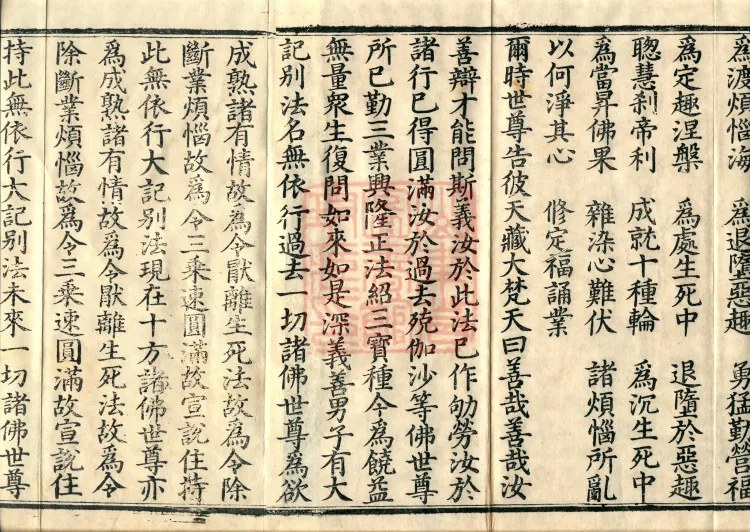 爲渡煩惱海　爲退墮惡趣　勇猛勤營福
爲定趣涅槃　爲處生死中　退墮於惡趣
聦慧刹帝利　成就十種輪　爲沉生死中
爲當昇佛果　雜染心難伏　諸煩惱所亂
以何淨其心　修定福誦業
爾時世尊告彼天藏大梵天曰善哉善哉汝
善辯才能問斯義汝於此法已作劬勞汝於
諸行已得圓滿汝於過去殑伽沙等佛世尊
所已勤三業興隆正法紹三寶種今爲饒益
無量衆生復問如來如是深義善男子有大
記別法名無依行過去一切諸佛世尊爲欲
成熟諸有情故爲令猒離生死法故爲令除
斷業煩惱故爲令三乘速圓滿故宣說住持
此無依行大記別法現在十方諸佛世尊亦
爲成熟諸有情故爲令猒離生死法故爲令
除斷業煩惱故爲令三乘速圓滿故宣說住
持此無依行大記別法未來一切諸佛世尊